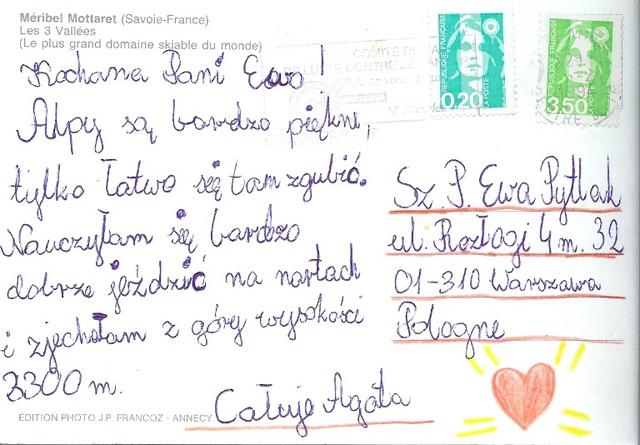 Méribel Mottaret (Savoie-France)
Les 3 Vallées
(Le plus grand domaine skiable du monde)
Kochana Pani Ewo!
Alpy są bardzo piękne,
tylko łatwo się tam zgubić.
Nauczyłam się bardzo
dobrze jeździć na nartach
i zjechałam z góry wysokości
3300 m.
Całuję Agata
ÉDITION PHOTO J.P. FRANCOZ - ANNECY
COMITÉ DE
LUTTE CONTRE LE
RÉPUBLIQUE FRANÇAISE
0,20
LA POSTE
RÉPUBLIQUE FRANÇAISE
3,50
LA POSTE
Sz. P. Ewa Pytlak
ul. Rozłogi 4 m. 32
01-310 Warszawa
Pologne